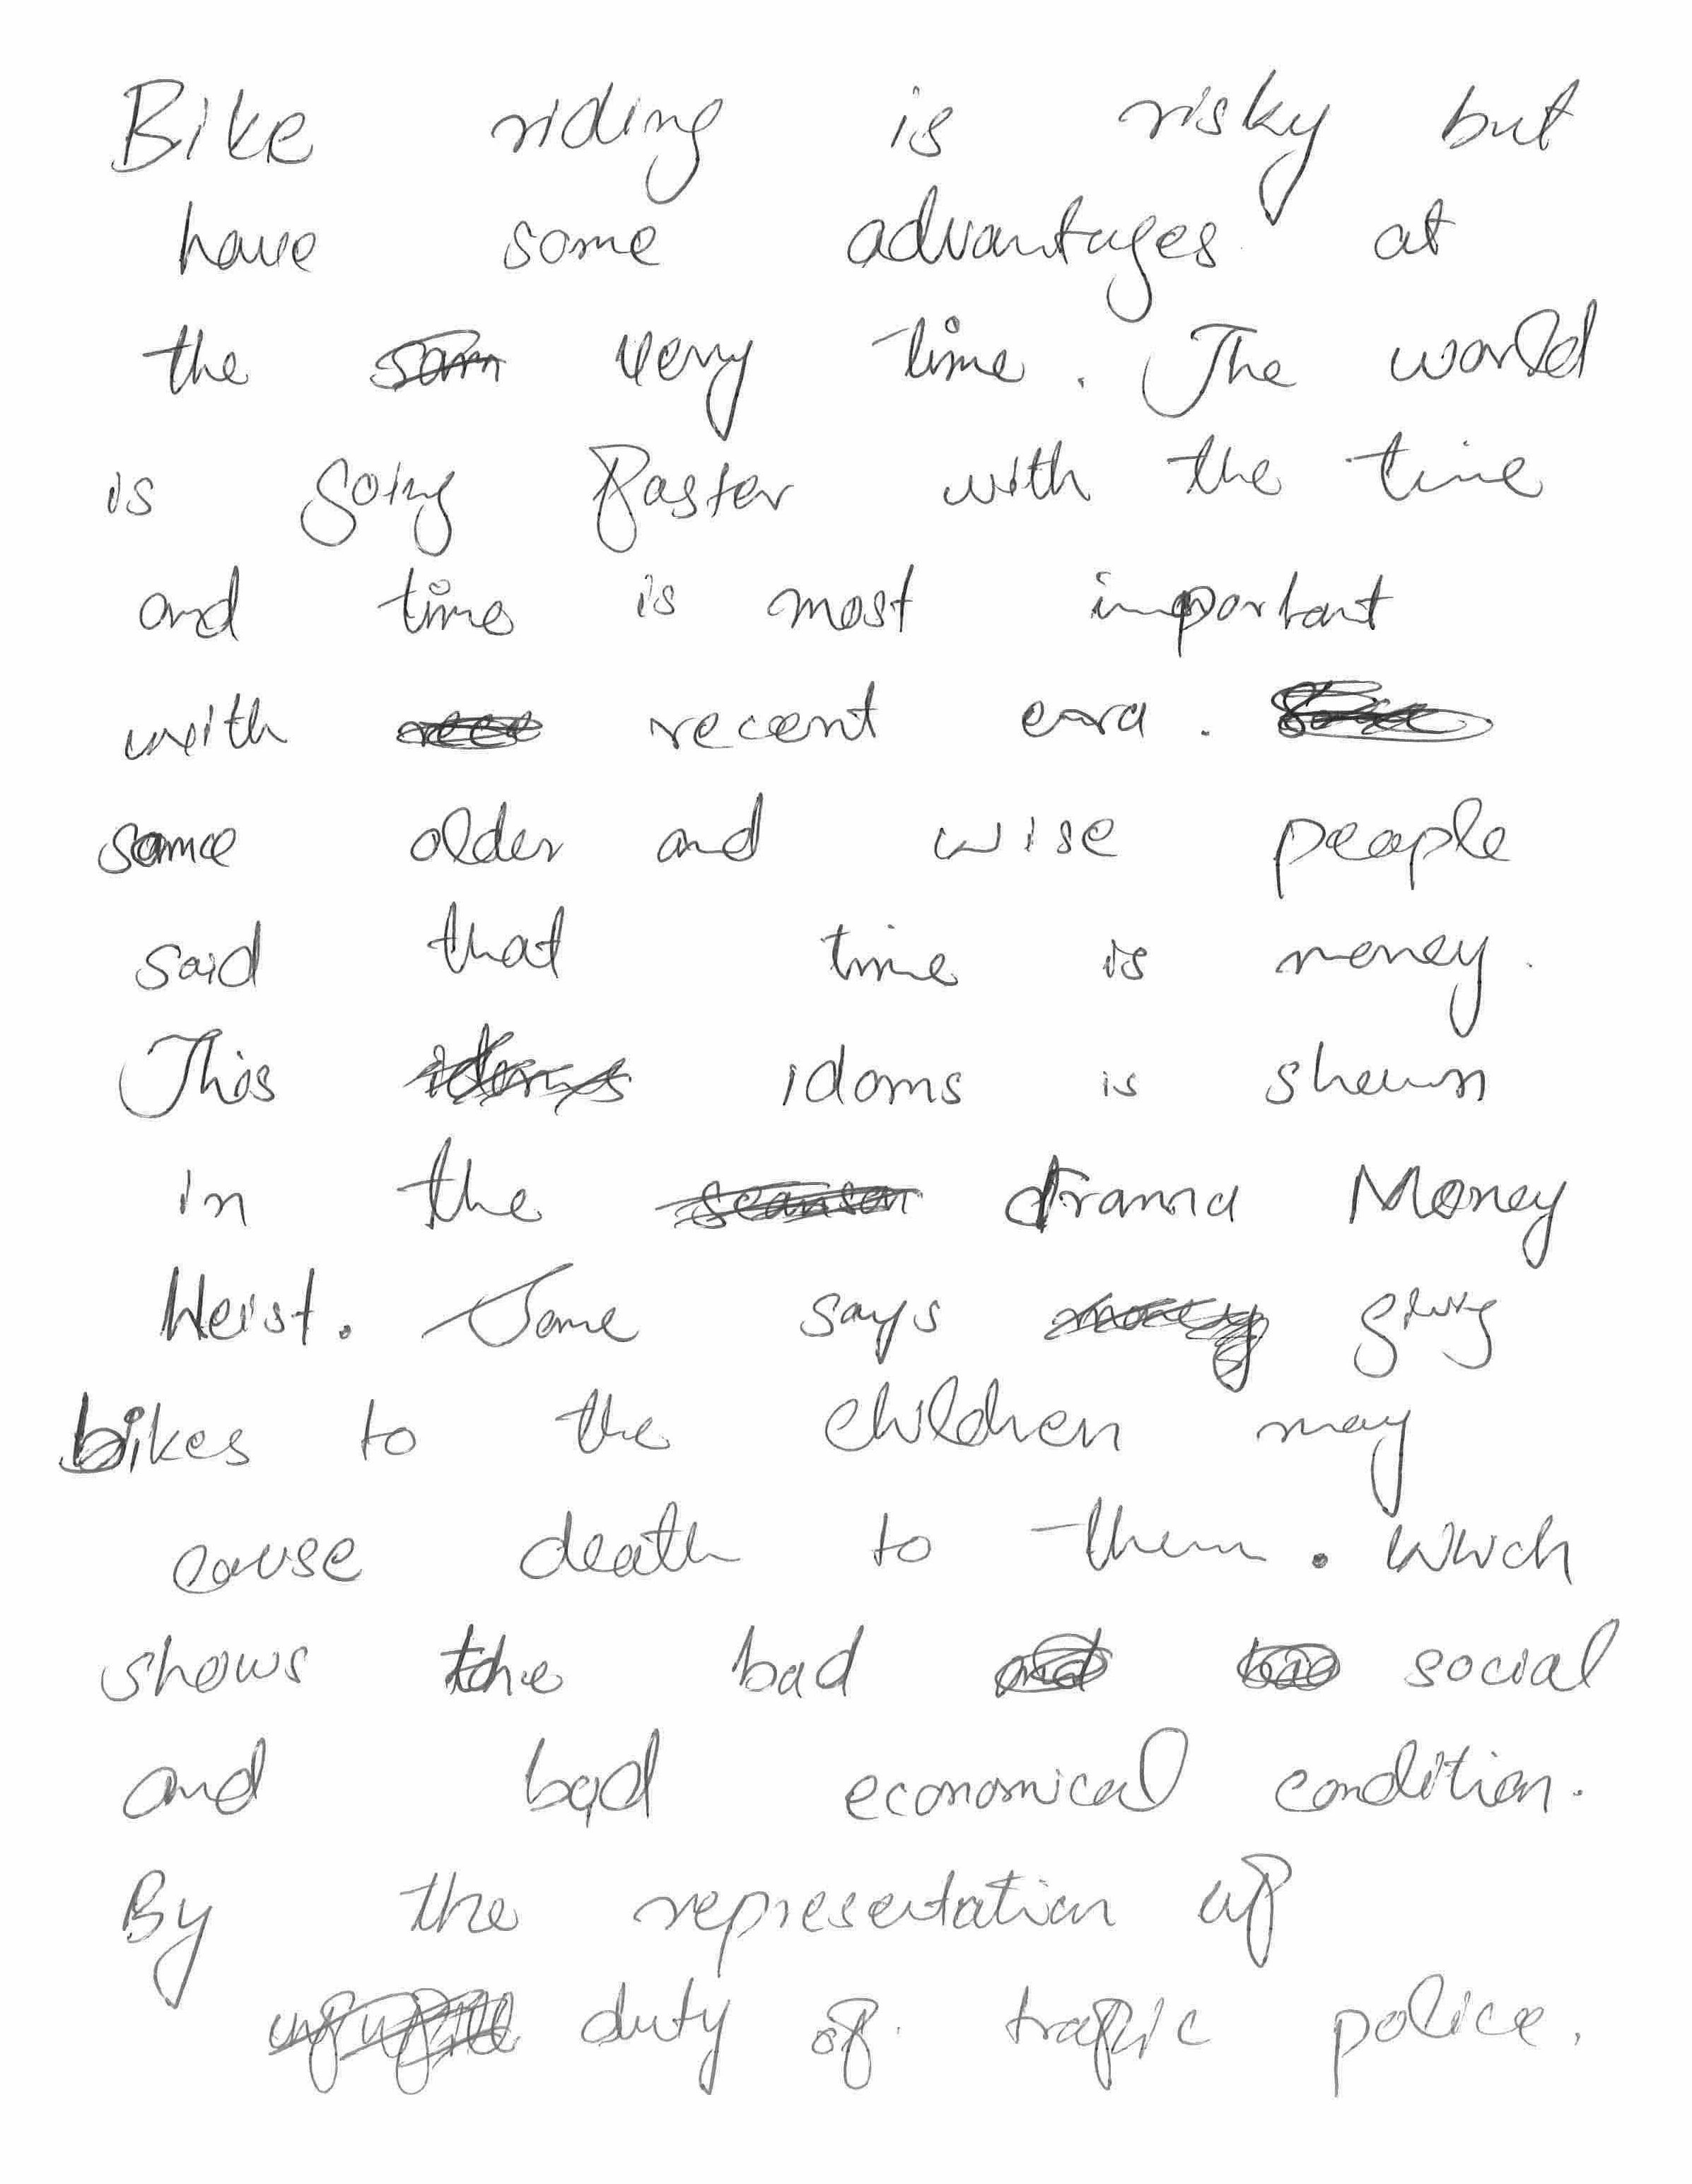 Bike riding is risky but
have some advantages at
the very time. The world
is going faster with the time
and time is most important
with recent eara.
some older and wise people
said that time is money.
This idoms is shown
in the drama Money
Heist. Some says giving
bikes to the children may
cause death to them. Which
shows the bad social
and bad economical condition.
By the representation of
duty of traffic police.